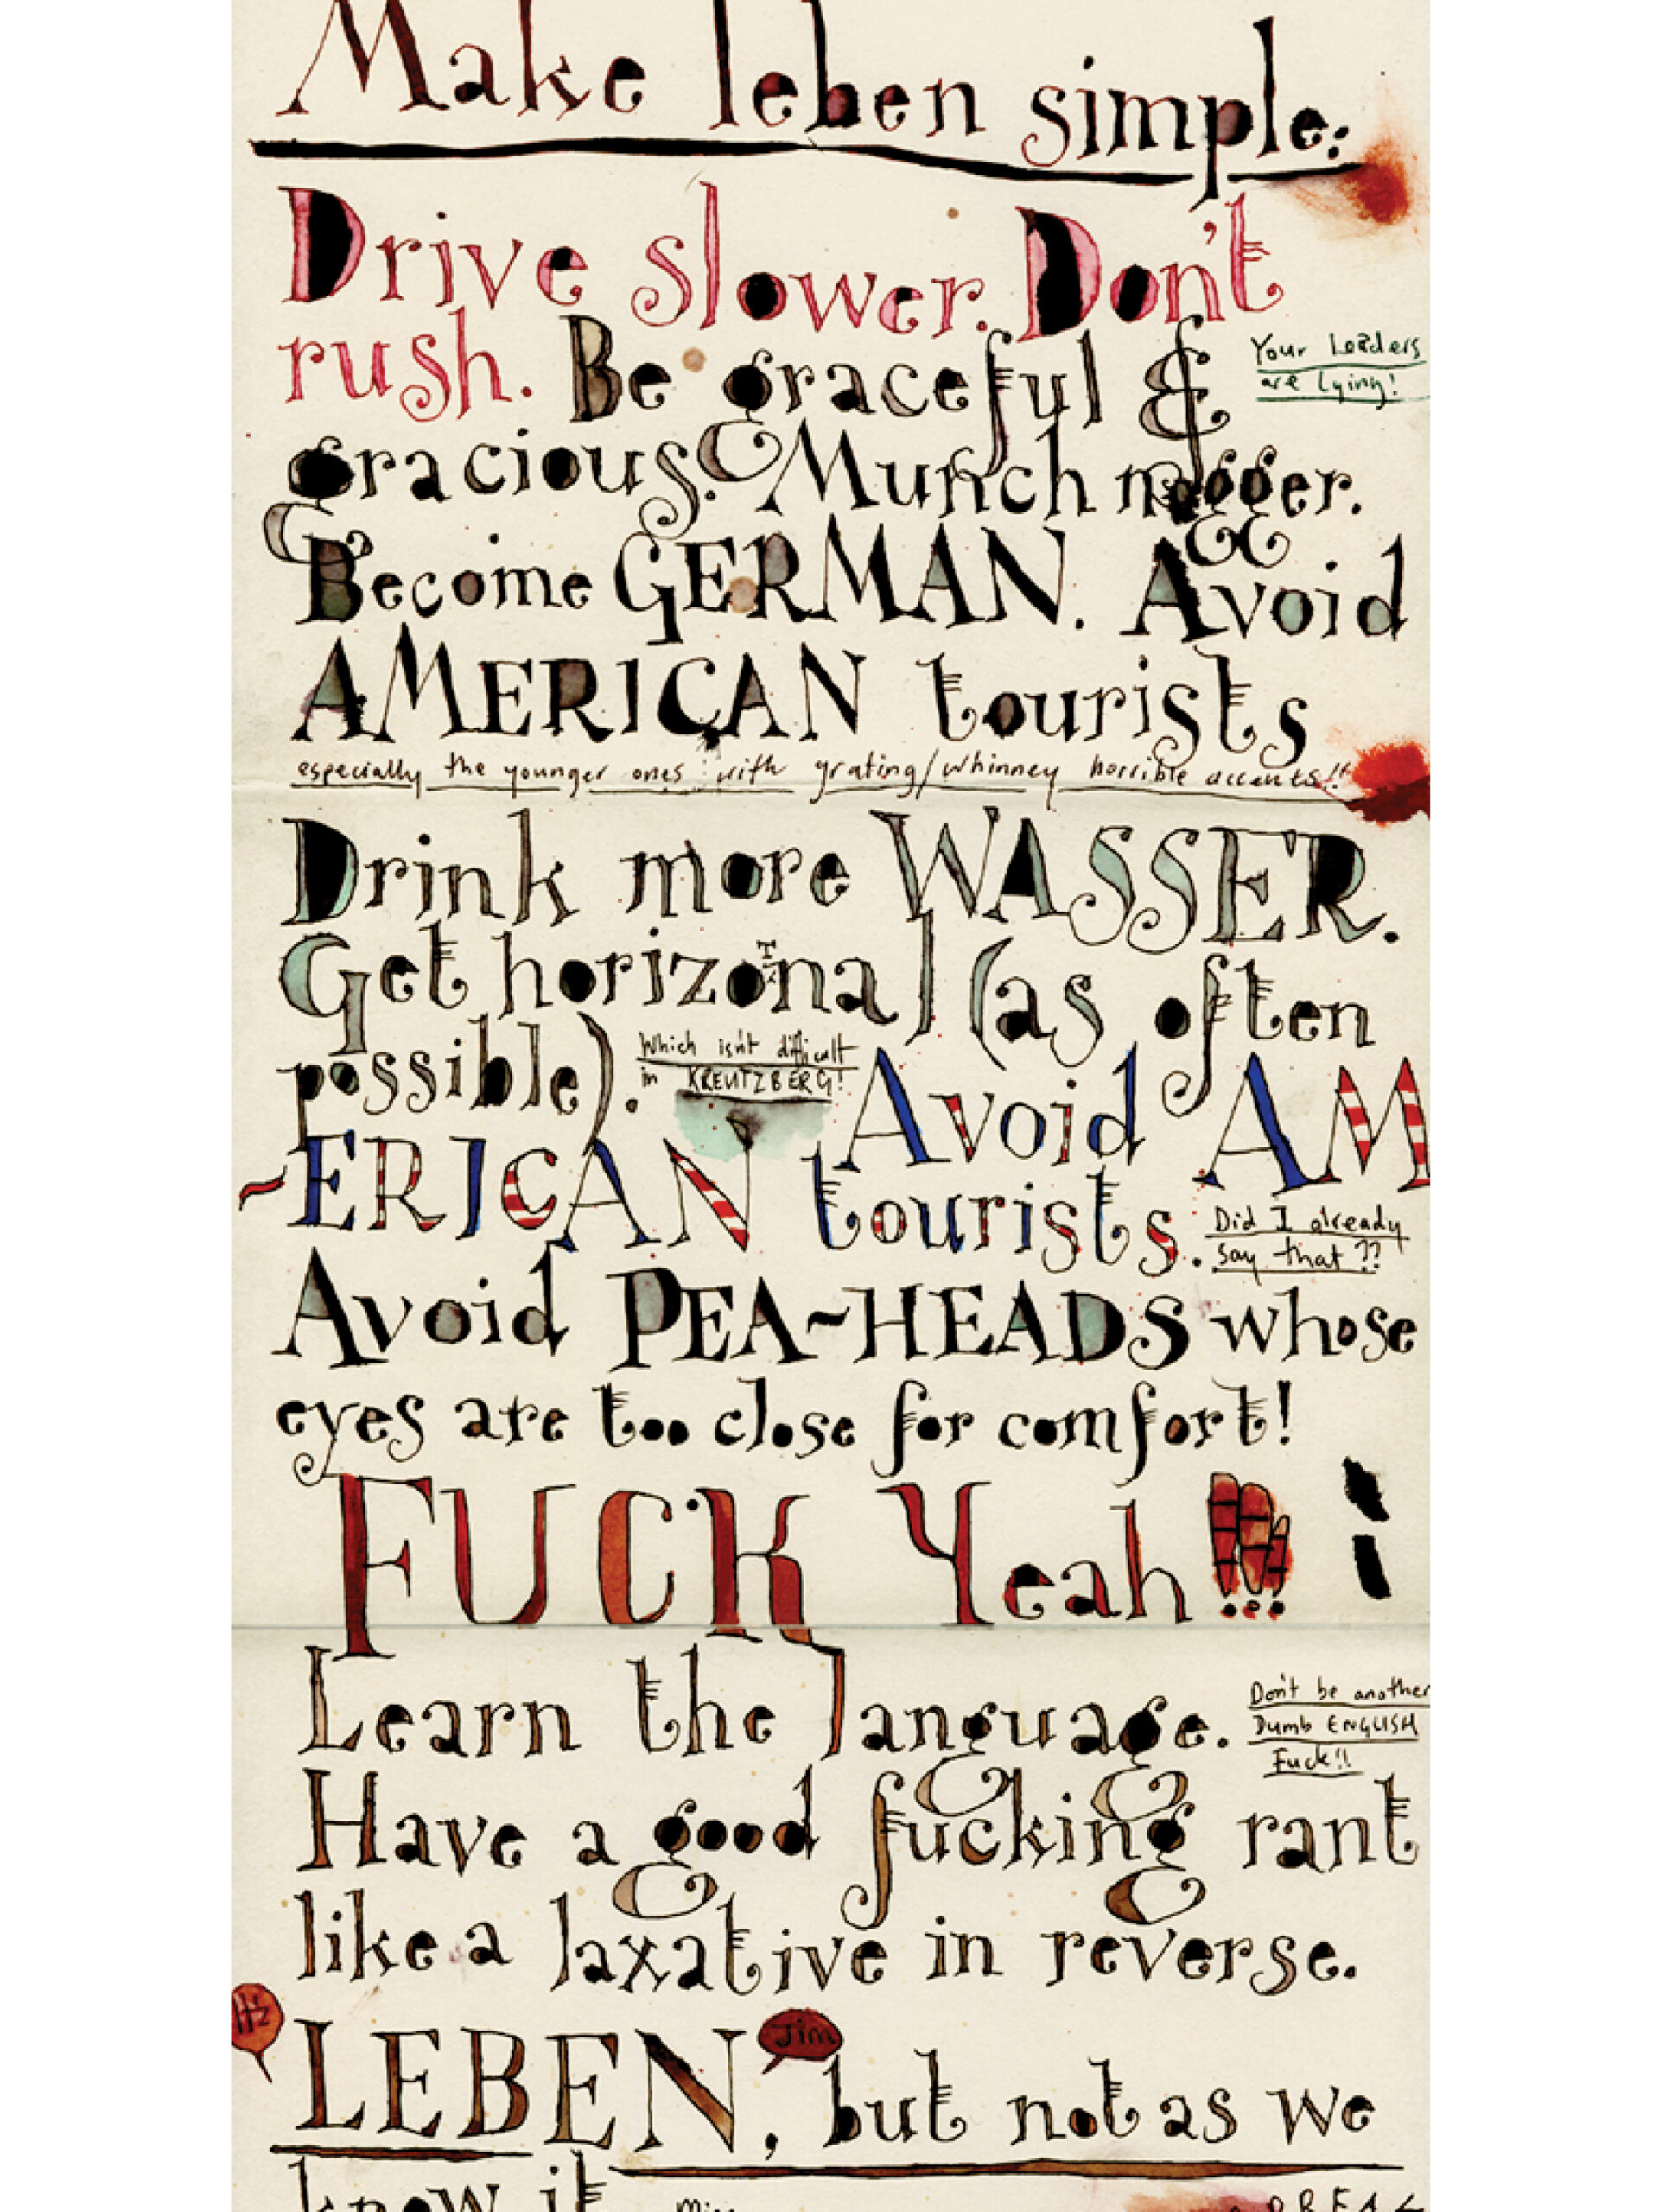 Make leben simple:
Drive slower. Don't
rush. Be graceful &
Your Leaders
are lying!
gracious. Munch
Become GERMAN. Avoid
AMERICAN tourists
especially the younger ones with grating/whinney horrible accents!!
Drink more WASSER.
Get horizonTal (as often
possible).
Which isn't difficult
in KREUTZBERG!
Avoid AM
~ERICAN tourists.
Did I already
say that??
Avoid PEA~HEADS whose
eyes are too close for comfort!
FUCK Yeah!!!
Learn the language.
Don't be another
Dumb ENGLISH
Fuck!!
Have a good fucking rant
like a laxative in reverse.
It'z
LEBEN,
Jim
but not as we
know it